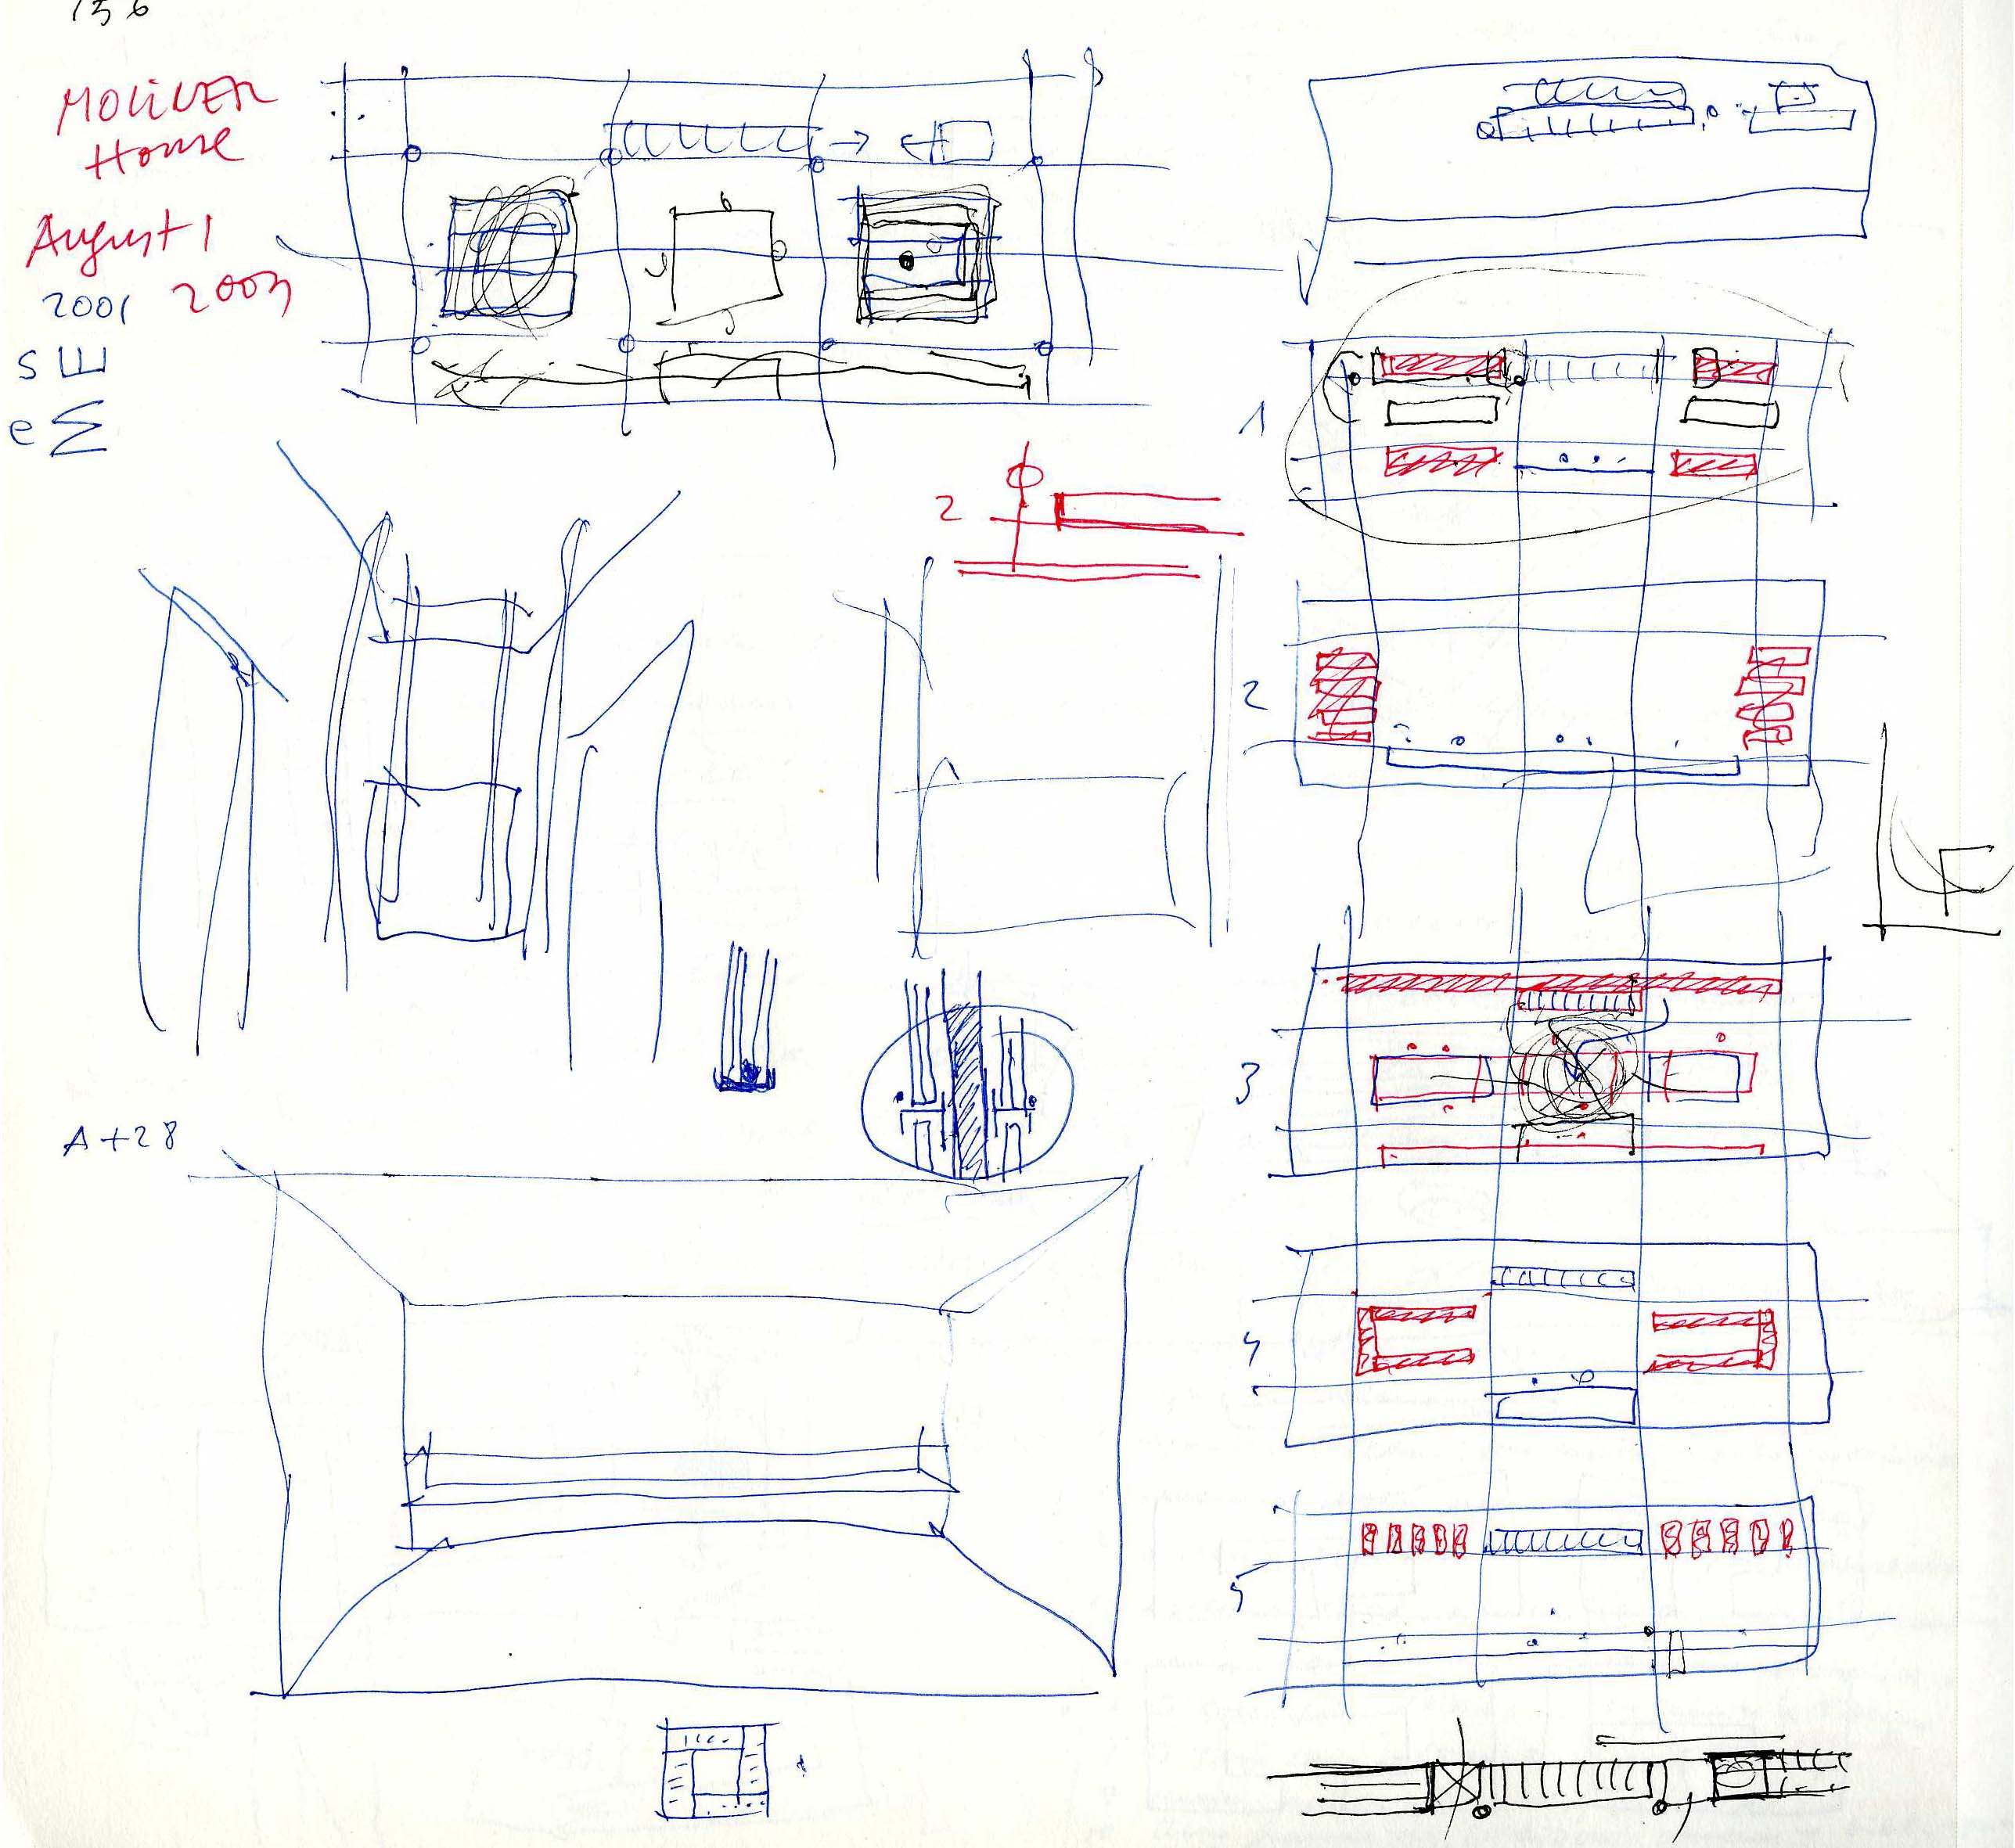 156
MOLINER
House
August 1
2001 2003
S E
e M
2
1
2
3
A+28
4
5